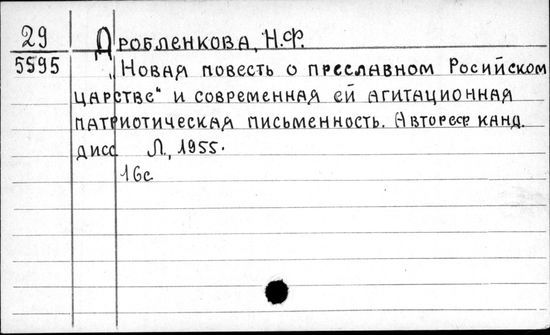 29 Дробленкова, Н.Ф.
5595 „Новая повесть о преславном Росийском
царстве“ и современная ей агитационная
патриотическая письменность. Автореф канд.
дисс Л., 1955.
16с